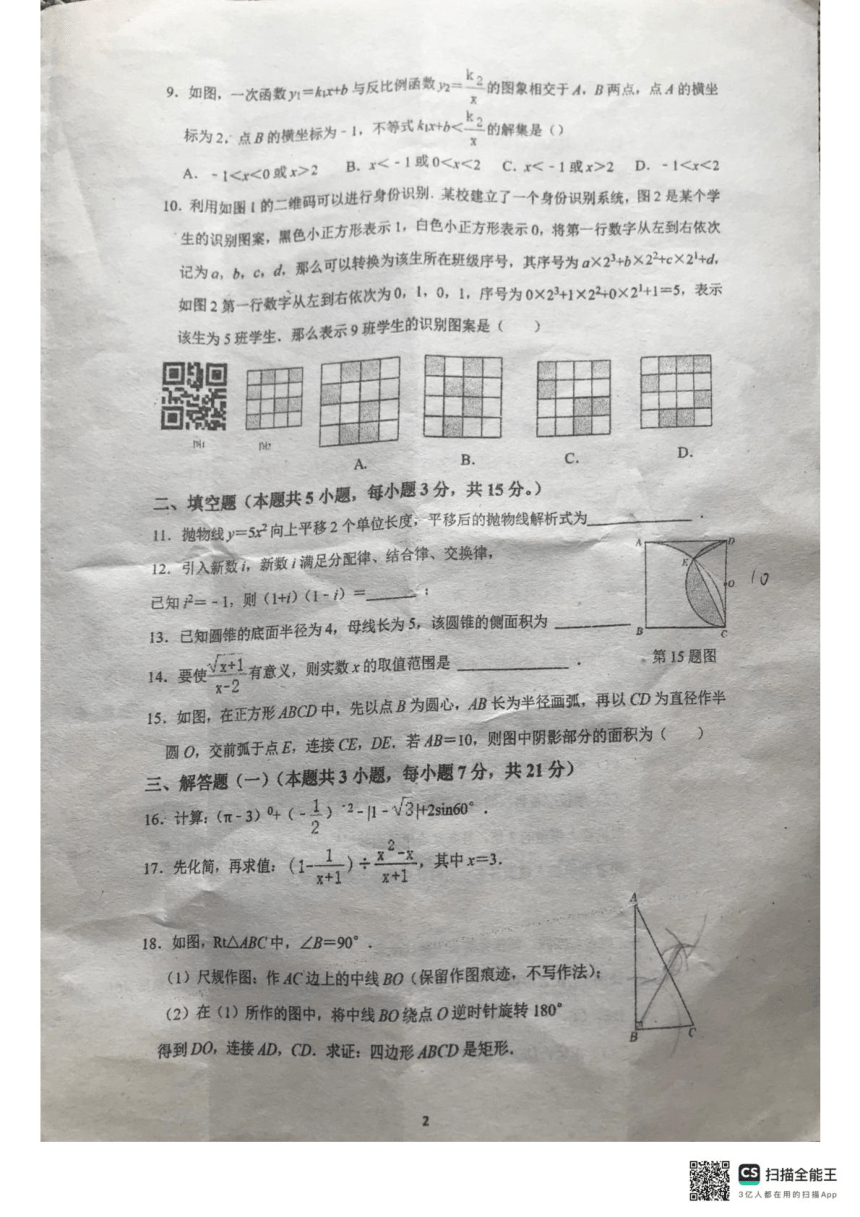 9. 如图，一次函数y₁=k₁x+b与反比例函数y₂=k₂/x的图象相交于A，B两点，点A的横坐
标为2，点B的横坐标为-1，不等式k₁x+b<k₂/x的解集是（）
A. -1<x<0或x>2 B. x<-1或0<x<2 C. x<-1或x>2 D. -1<x<2
10. 利用如图1的二维码可以进行身份识别．某校建立了一个身份识别系统，图2是某个学
生的识别图案，黑色小正方形表示1，白色小正方形表示0，将第一行数字从左到右依次
记为a，b，c，d，那么可以转换为该生所在班级序号，其序号为a×2³+b×2²+c×2¹+d，
如图2第一行数字从左到右依次为0，1，0，1，序号为0×2³+1×2²+0×2¹+1=5，表示
该生为5班学生．那么表示9班学生的识别图案是（ ）
图1 图2
A. B. C. D.
二、填空题（本题共5小题，每小题3分，共15分。）
11. 抛物线y=5x²向上平移2个单位长度，平移后的抛物线解析式为________．
12. 引入新数i，新数i满足分配律、结合律、交换律，
已知i²=-1，则（1+i）（1-i）=____；
13. 已知圆锥的底面半径为4，母线长为5，该圆锥的侧面积为________
14. 要使√(x+1)/(x-2)有意义，则实数x的取值范围是________．
A D E O B C 10
第15题图
15. 如图，在正方形ABCD中，先以点B为圆心，AB长为半径画弧，再以CD为直径作半
圆O，交前弧于点E，连接CE，DE．若AB=10，则图中阴影部分的面积为（ ）
三、解答题（一）（本题共3小题，每小题7分，共21分）
16. 计算：（π-3）⁰+（-1/2）⁻²-|1-√3|+2sin60°．
17. 先化简，再求值：（1-1/(x+1)）÷(x²-x)/(x+1)，其中x=3．
18. 如图，Rt△ABC中，∠B=90°．
（1）尺规作图：作AC边上的中线BO（保留作图痕迹，不写作法）；
（2）在（1）所作的图中，将中线BO绕点O逆时针旋转180°
得到DO，连接AD，CD．求证：四边形ABCD是矩形．
A B C
2
CS 扫描全能王
3亿人都在用的扫描App